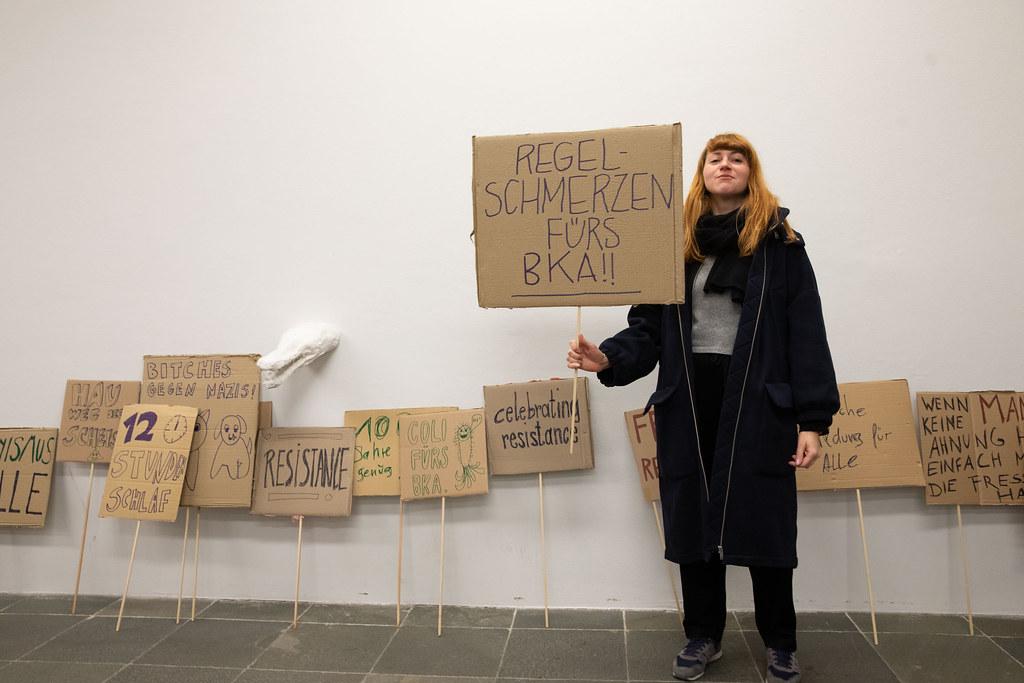 REGEL-
SCHMERZEN
FÜRS
BKA!!
HAU
WEG
SCHEIS
BITCHES
GEGEN NAZIS!
12
STUNDN
SCHLAF
LLE
RESISTANCE
10
Jahre
genug
COLI
FÜRS
BKA.
celebrating
resistance
für
Alle
WENN
KEINE
AHNUNG
EINFACH
DIE FRESSE
MA
HA